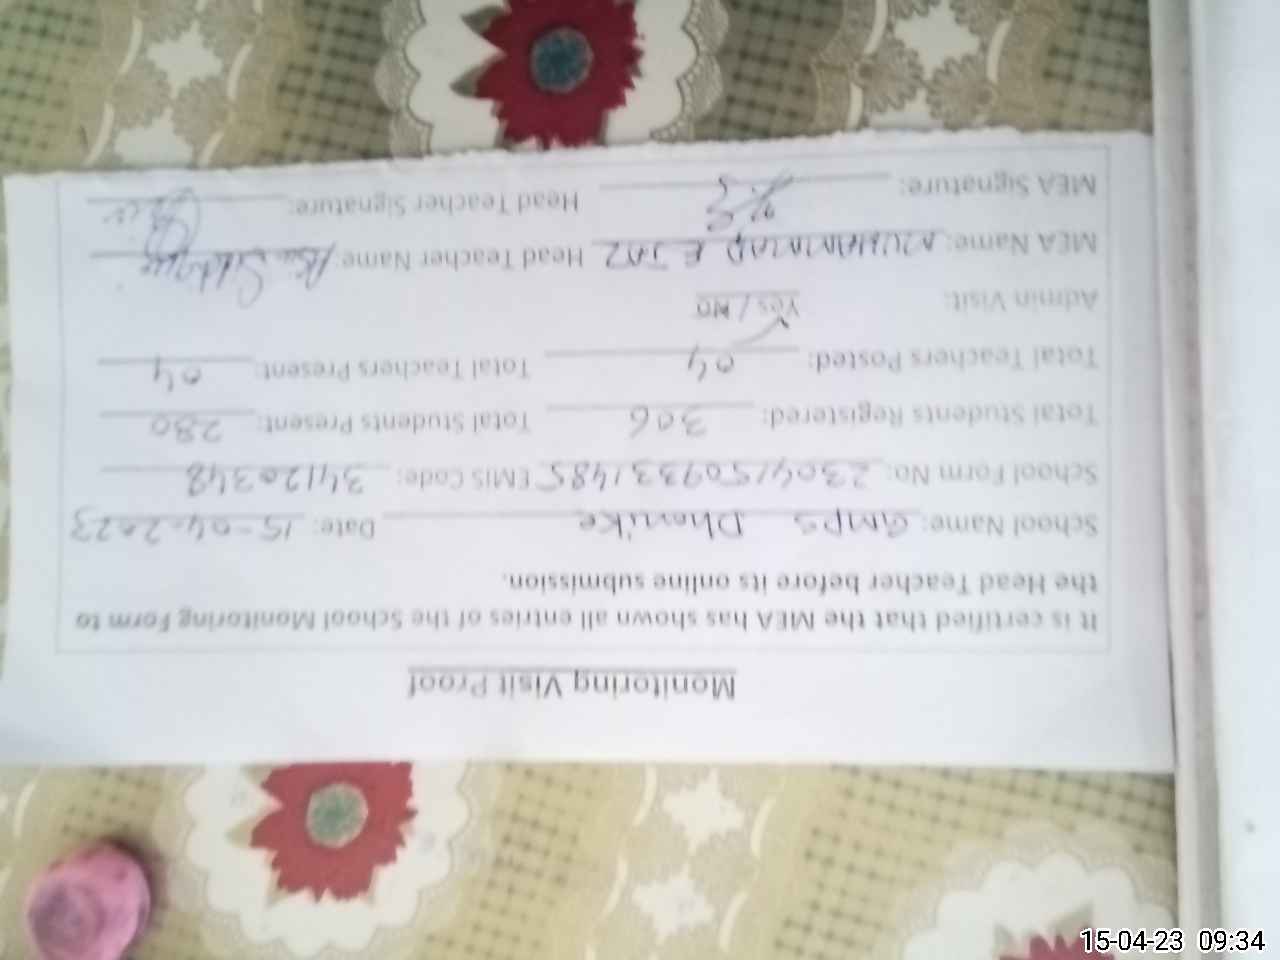 Monitoring Visit Proof
It is certified that the MEA has shown all entries of the School Monitoring Form to
the Head Teacher before its online submission.
School Name: GMPS Dhenike Date: 15-04-2023
School Form No: 23041509331485 EMIS Code: 34120348
Total Students Registered: 306 Total Students Present: 280
Total Teachers Posted: 04 Total Teachers Present: 04
Admin Visit: Yes / No
MEA Name: MUHAMMAD EJAZ Head Teacher Name:
MEA Signature: Head Teacher Signature:
15-04-23 09:34